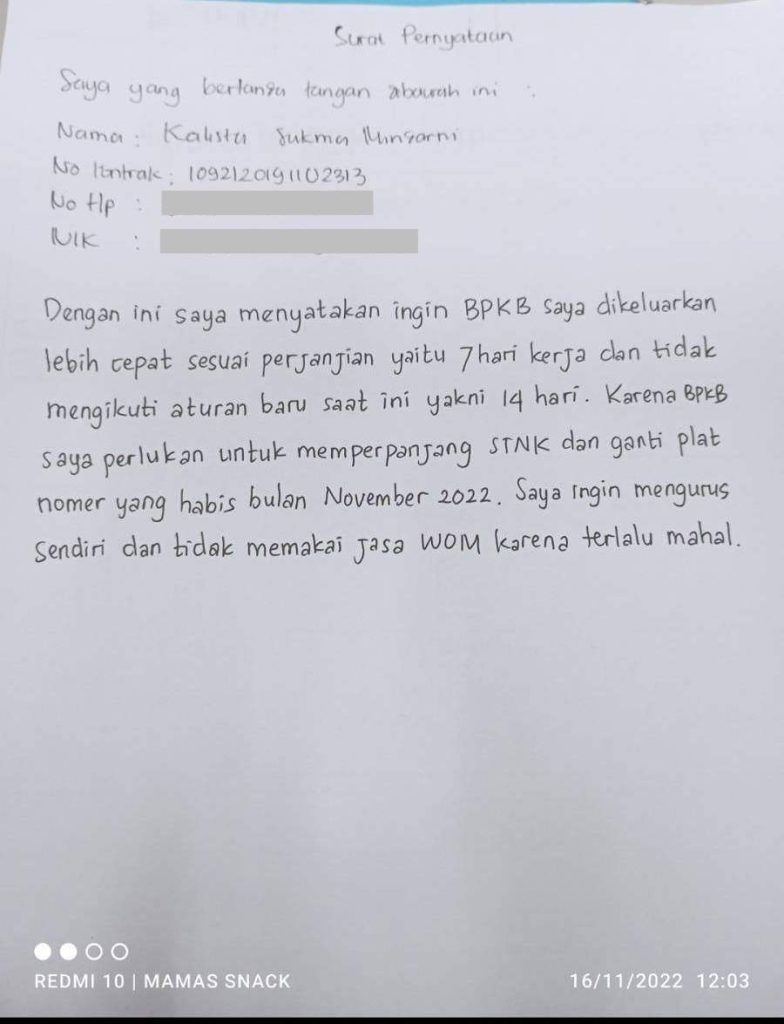 Surat Pernyataan
Saya yang bertanda tangan dibawah ini :
Nama : Kalista Sukma
No Kntrak : 1092120191102313
No Hp :
NIK :
Dengan ini saya menyatakan ingin BPKB saya dikeluarkan
lebih cepat sesuai perjanjian yaitu 7 hari kerja dan tidak
mengikuti aturan baru saat ini yakni 14 hari. Karena BPKB
saya perlukan untuk memperpanjang STNK dan ganti plat
nomer yang habis bulan November 2022. Saya ingin mengurus
sendiri dan tidak memakai jasa WOM karena terlalu mahal.
REDMI 10 | MAMAS SNACK
16/11/2022 12:03